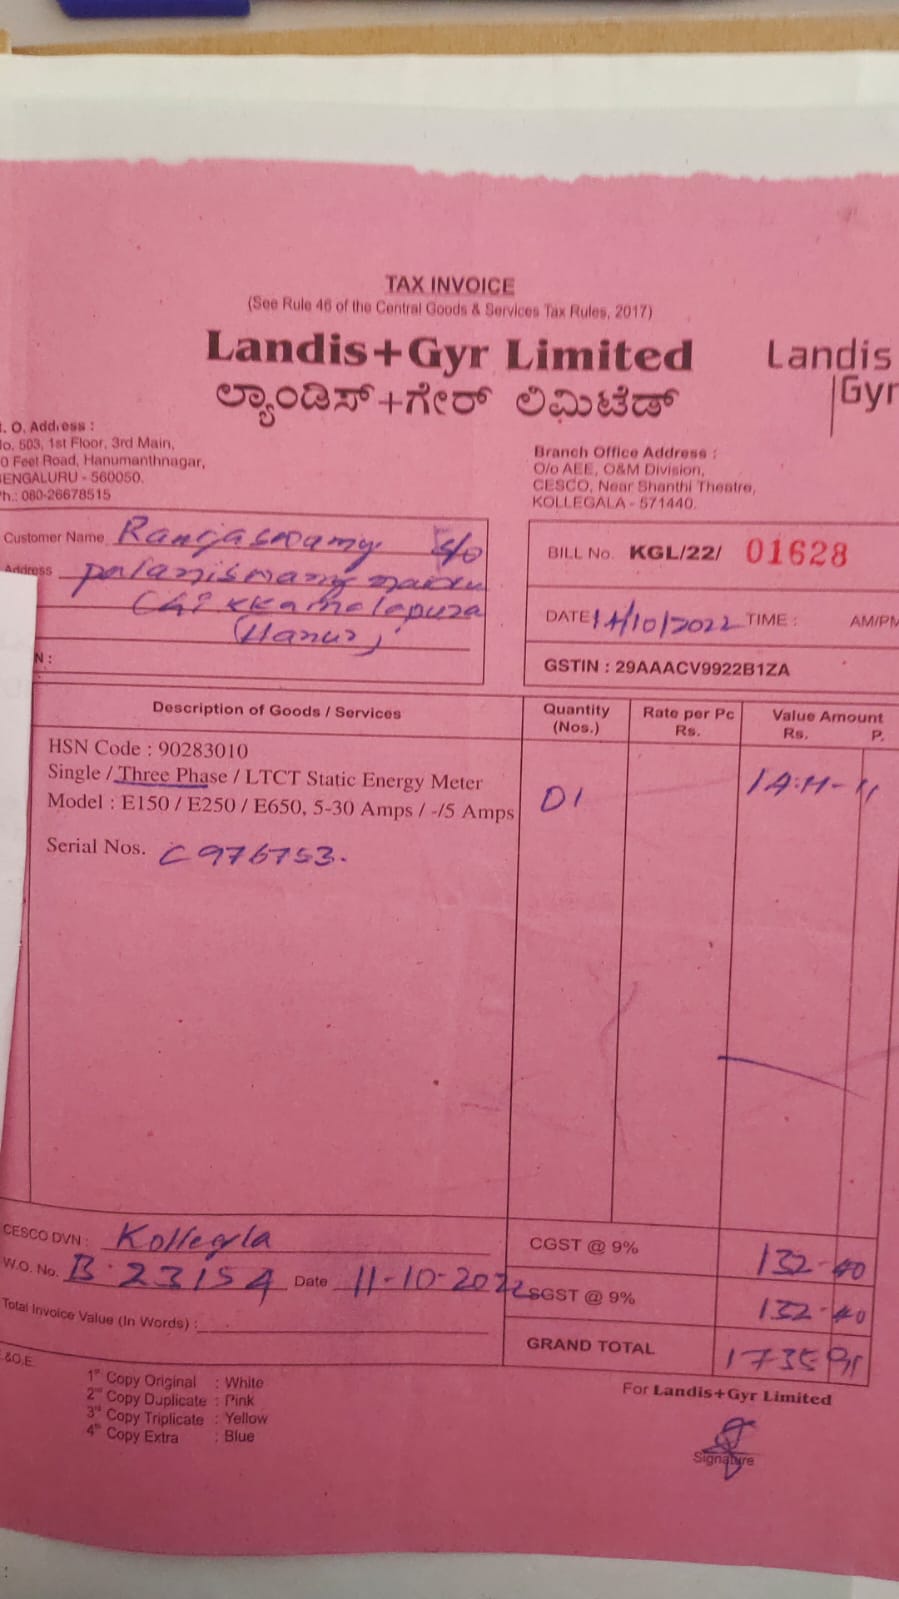 TAX INVOICE
(See Rule 46 of the Central Goods & Services Tax Rules, 2017)
Landis+Gyr Limited
ಲ್ಯಾಂಡಿಸ್+ಗೇರ್ ಲಿಮಿಟೆಡ್
Landis
Gyr
. O. Address :
o. 503, 1st Floor, 3rd Main,
0 Feet Road, Hanumanthnagar,
ENGALURU - 560050.
h.: 080-26678515
Branch Office Address :
O/o AEE, O&M Division,
CESCO, Near Shanthi Theatre,
KOLLEGALA - 571440.
Customer Name Rangaswamy S/o
Address palaniswamy
Chikkamalapura
(Hanur)
N :
BILL No. KGL/22/ 01628
DATE 14/10/2022 TIME : AM/PM
GSTIN : 29AAACV9922B1ZA
Description of Goods / Services Quantity (Nos.) Rate per Pc Rs. Value Amount Rs. P.
HSN Code : 90283010
Single / Three Phase / LTCT Static Energy Meter
Model : E150 / E250 / E650, 5-30 Amps / -/5 Amps 01
Serial Nos. C976753.
CESCO DVN : Kollegla
W.O. No. B 23154 Date 11-10-2022
Total Invoice Value (In Words) :
CGST @ 9% 132-40
SGST @ 9% 132-40
GRAND TOTAL 1735
&O.E.
1st Copy Original : White
2nd Copy Duplicate : Pink
3rd Copy Triplicate : Yellow
4th Copy Extra : Blue
For Landis+Gyr Limited
Signature